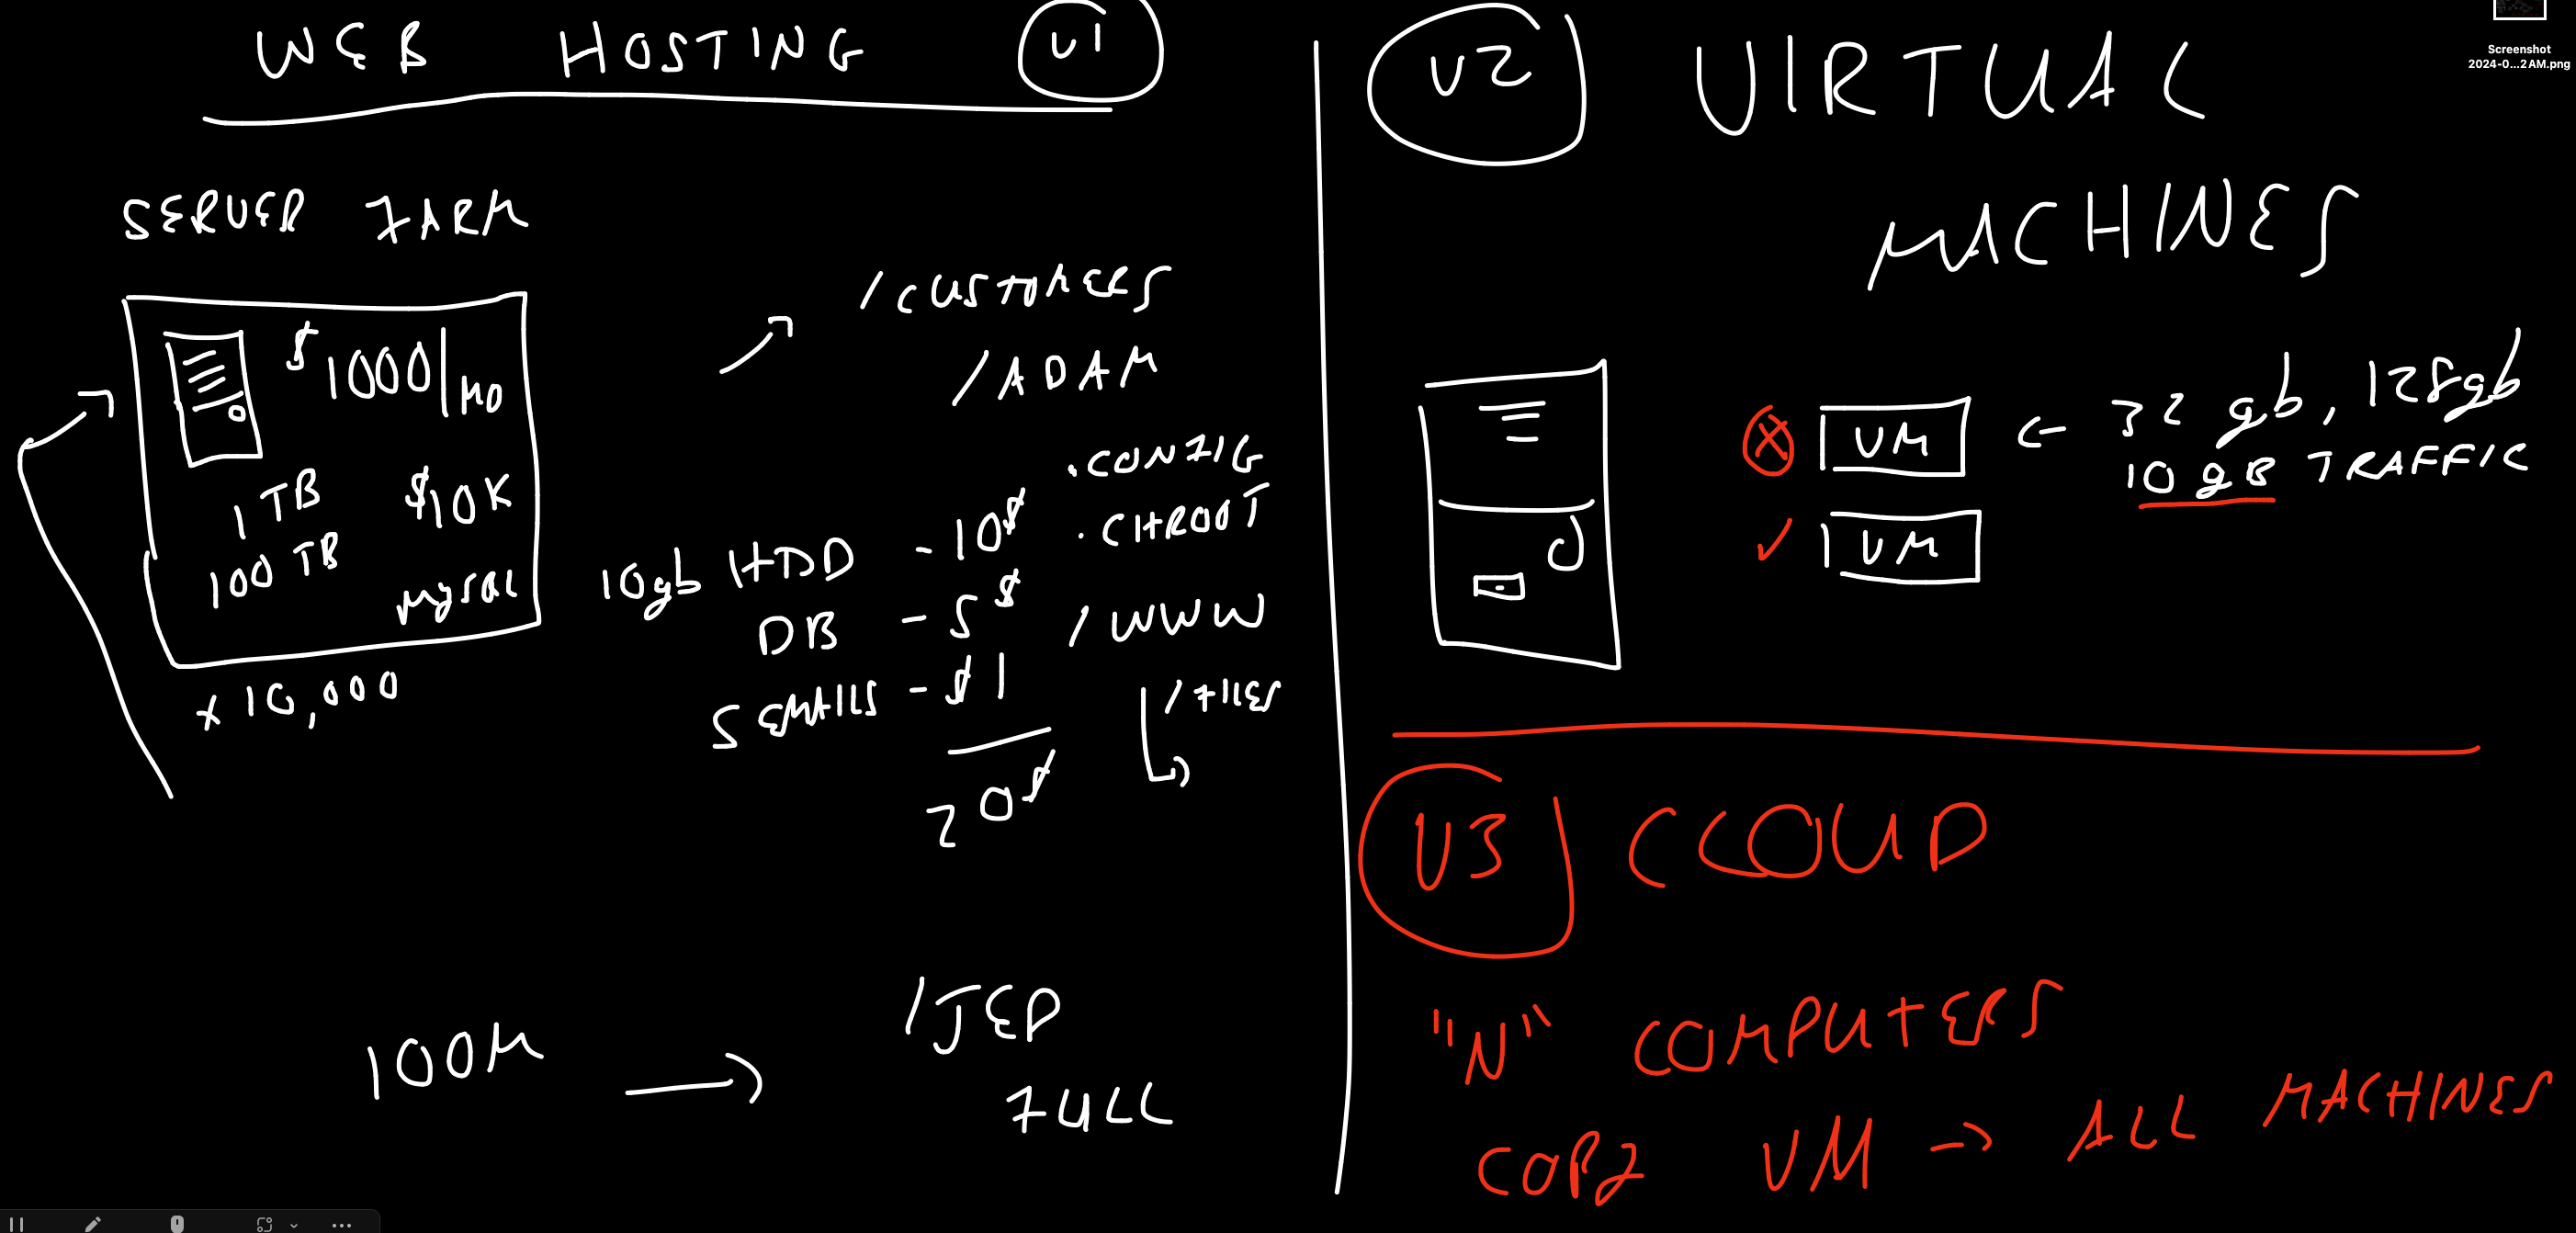 WEB HOSTING V1
SERVER FARM
$1000/MO
1 TB $10K
100 TB
MYSQL
x 10,000
/CUSTOMERS
/ADAM
.CONFIG
.CHROOT
/WWW
/FILES
10gb HDD - 10$
DB - 5$
5 EMAILS - $1
20$
100M
/JED
FULL
V2 VIRTUAL
MACHINES
VM ← 32 gb, 128gb
10 gB TRAFFIC
VM
V3 CLOUD
"N" COMPUTERS
COPY VM → ALL MACHINES
Screenshot
2024-0...2AM.png